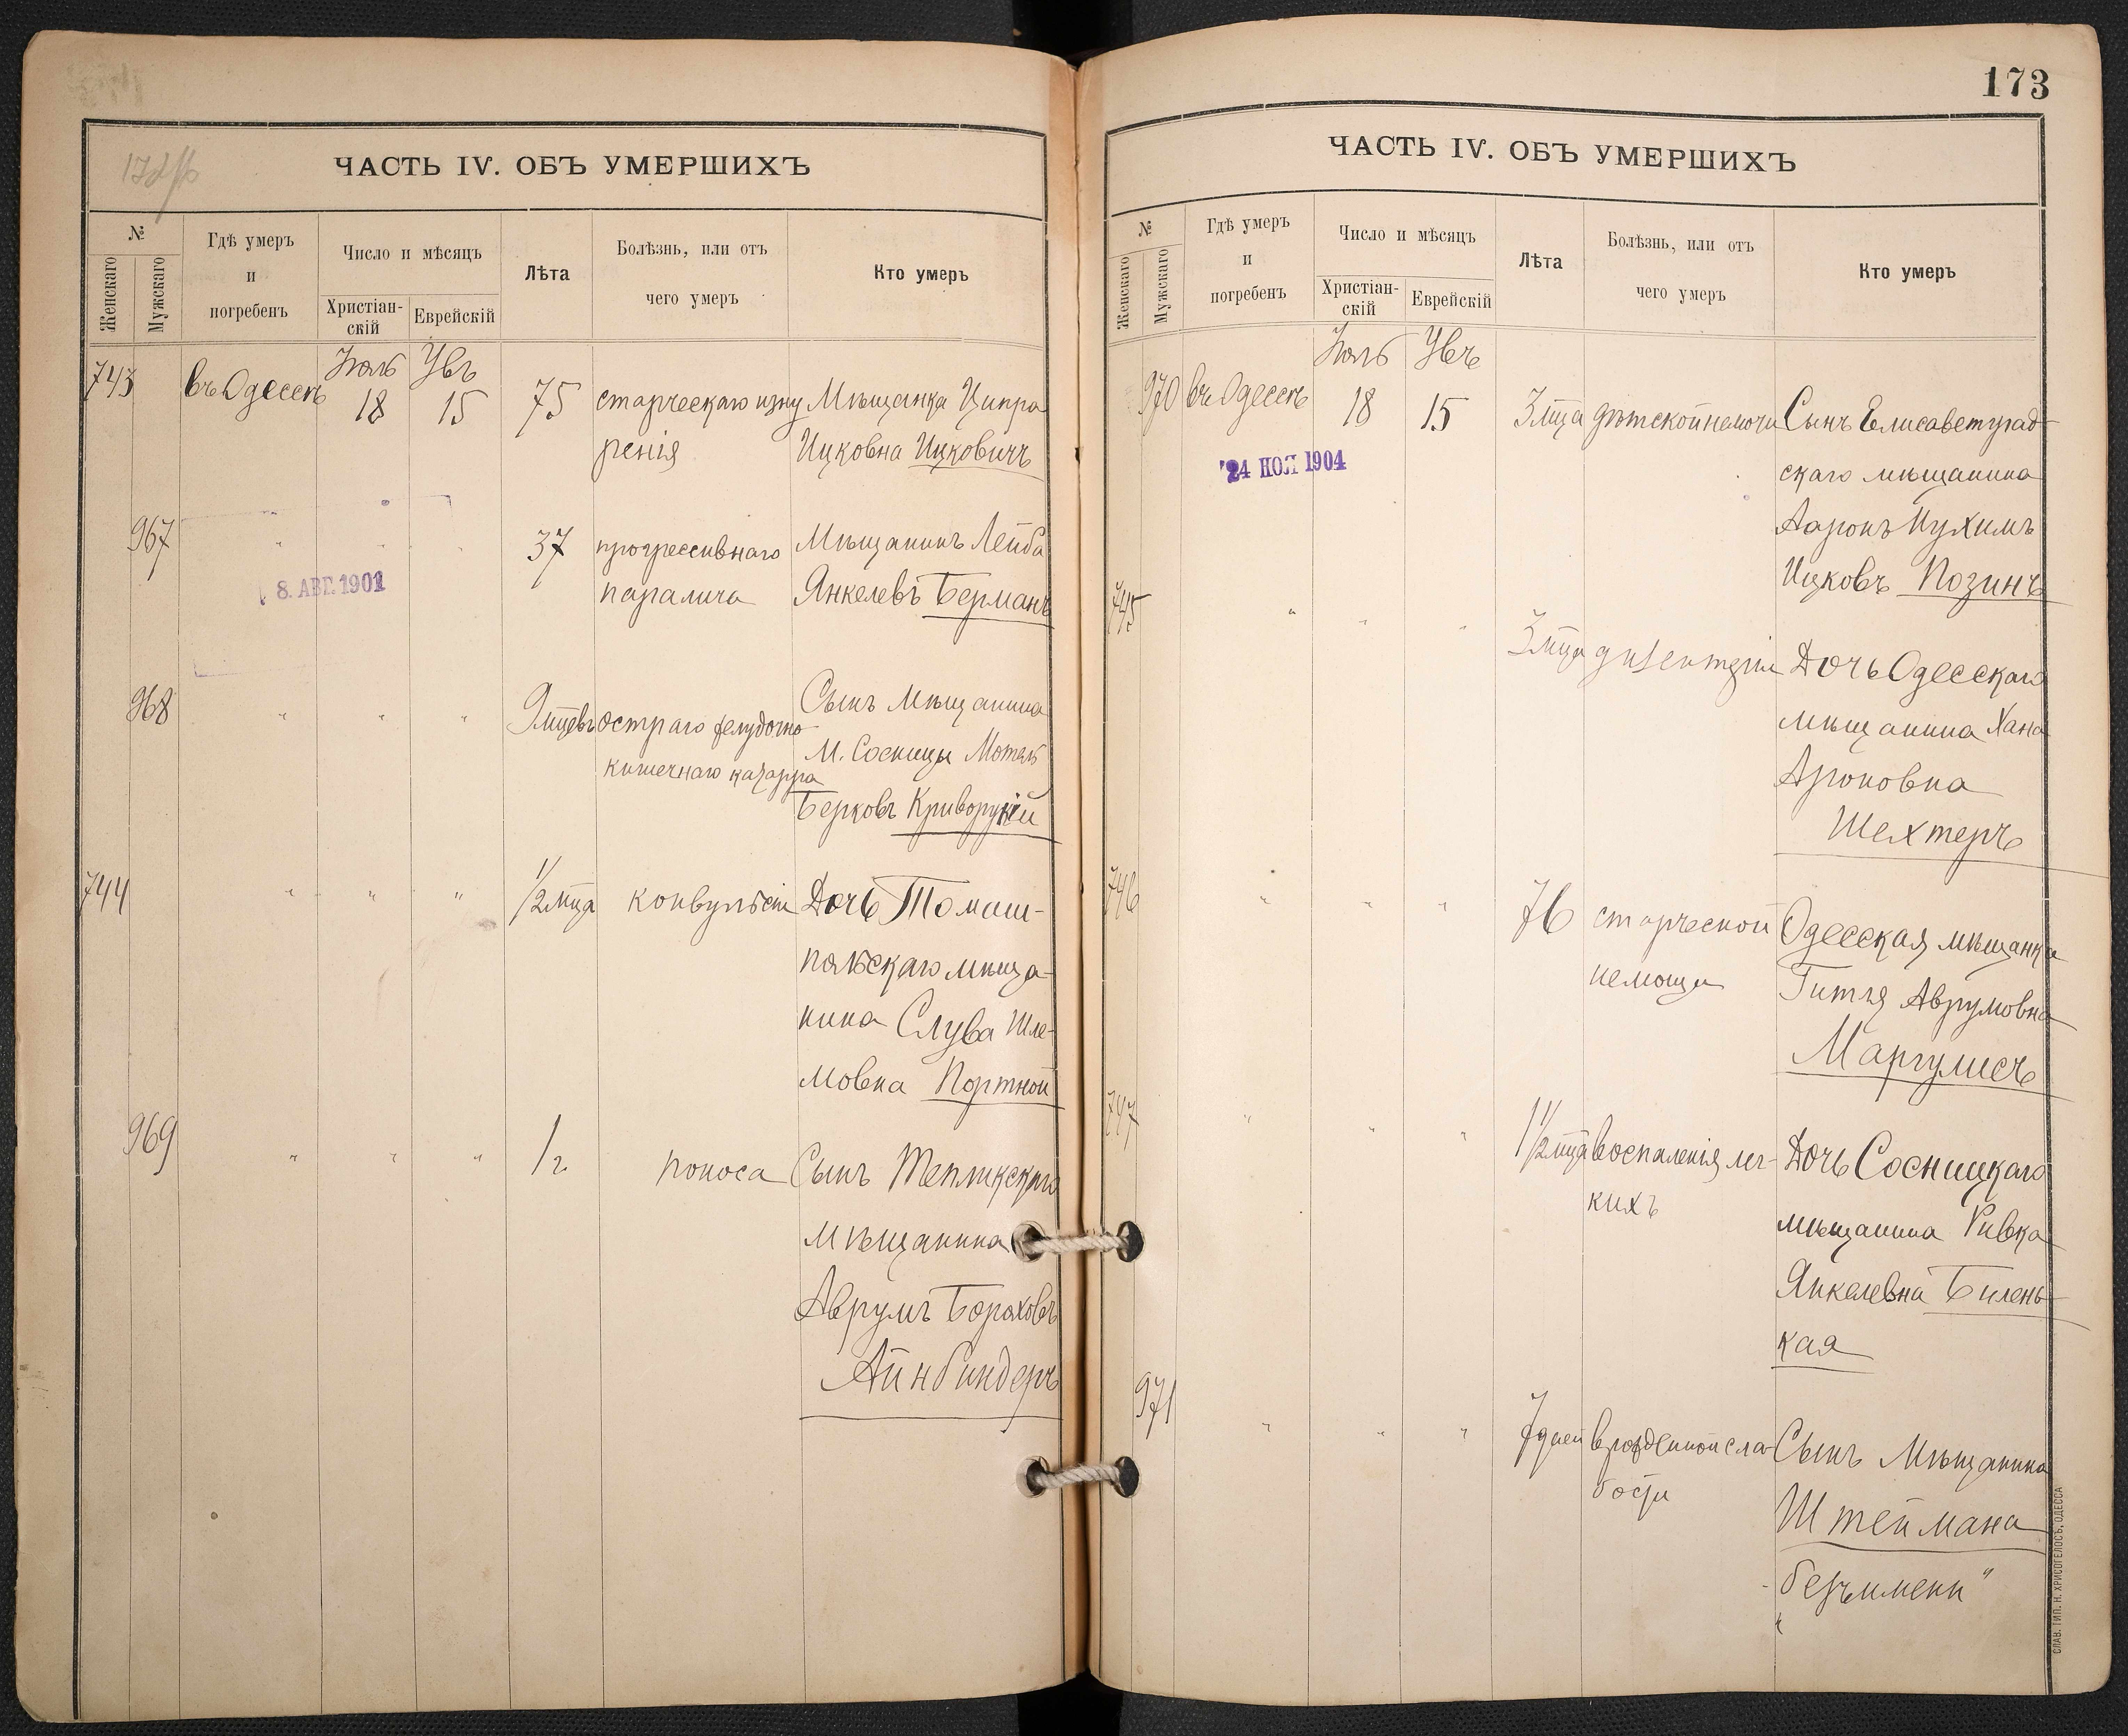 ЧАСТЬ IV. ОБЪ УМЕРШИХЪ
№
Женскаго
Мужскаго
Гдѣ умеръ
и
погребенъ
Число и мѣсяцъ
Христіан-
скій
Еврейскій
Лѣта
Болѣзнь, или отъ
чего умеръ
Кто умеръ
743 въ Одессѣ Іюль 18 Увъ 15 75 старческаго изну
ренія
Мѣщанка Ципра
Ицковна Ицковичъ
967 " " " 37 прогрессивнаго
паралича
Мѣщанинъ Лейба
Янкелевъ Берманъ
8. АВГ. 1901
968 " " " 9 мцевъ остраго желудочно
кишечнаго катарра
Сынъ Мѣщанина
м. Сосницы Мотель
Берковъ Криворукій
744 " " " 1/2 мца конвульсіи
Дочь Томаш-
польскаго мѣща-
нина Слува Шле-
мовна Портной
969 " " " 1 г. поноса
Сынъ Тепликскаго
мѣщанина
Аврумъ Бораховъ
Айнбиндеръ
173
ЧАСТЬ IV. ОБЪ УМЕРШИХЪ
№
Женскаго
Мужскаго
Гдѣ умеръ
и
погребенъ
Число и мѣсяцъ
Христіан-
скій
Еврейскій
Лѣта
Болѣзнь, или отъ
чего умеръ
Кто умеръ
970 въ Одессѣ Іюль 18 Увъ 15 3 мца дѣтской немочи
Сынъ Елисаветград-
скаго мѣщанина
Ааронъ Нухимъ
Ицковъ Позинъ
24 НОЯ 1904
745 " " " 3 мца дизентеріи
Дочь Одесскаго
мѣщанина Хана
Ароновна
Шехтеръ
746 " " " 76 старческой
немощи
Одесская мѣщанка
Гитля Аврумовна
Маргулисъ
747 " " " 1 1/2 мца воспаленія лег-
кихъ
Дочь Сосницкаго
мѣщанина Ривка
Янкелевна Билень-
кая
971 " " " 7 дней врожденной сла-
бости
Сынъ Мѣщанина
Штеймана
"безъ имени"
СЛАВ. ТИП. Н. ХРИСОГЕЛОСЪ, ОДЕССА